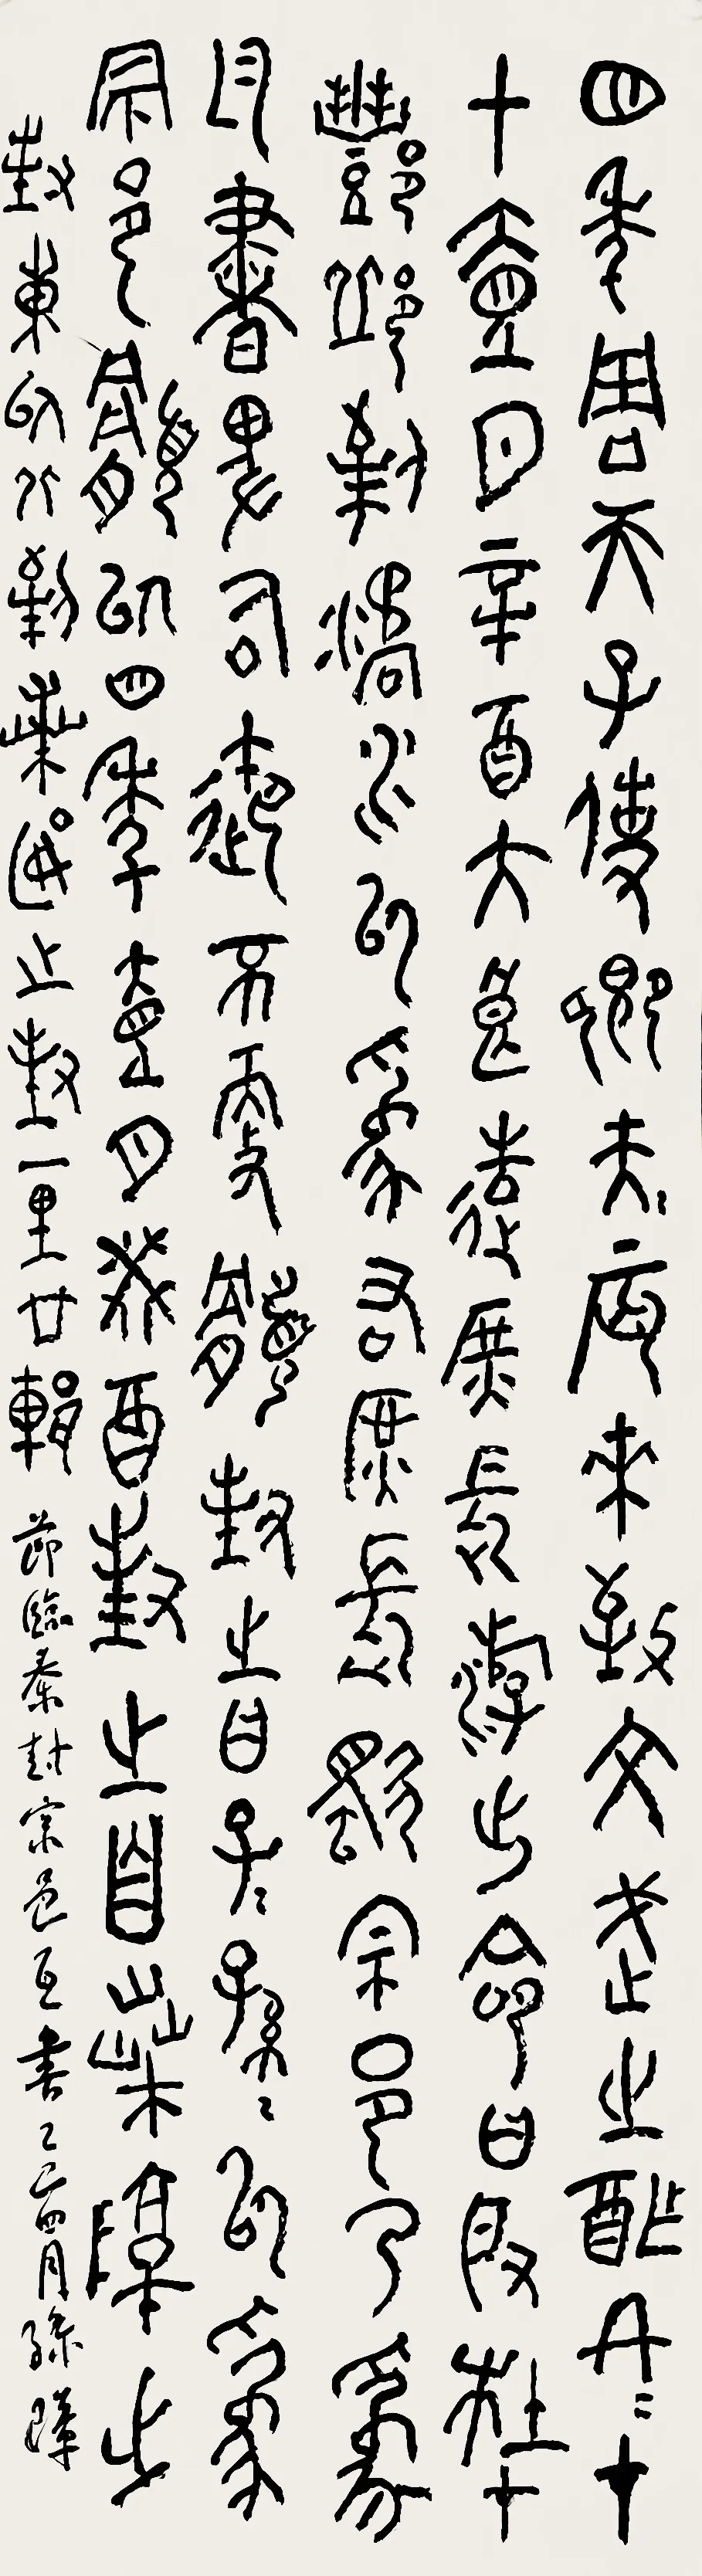 四年周天子使卿夫=辰來致文武之酢冬=十
十壹月辛酉大良造庶長游出命曰取杜才
酆邱到潏水以為右庶長歜宗邑乃為
瓦書卑司御不更顝封之曰子=孫=以為
宗邑顝以四年壹月癸酉封之自桑淳之
封東以北到桑匽之封一里廿輯 节臨秦封宗邑瓦書乙巳四月孫璋